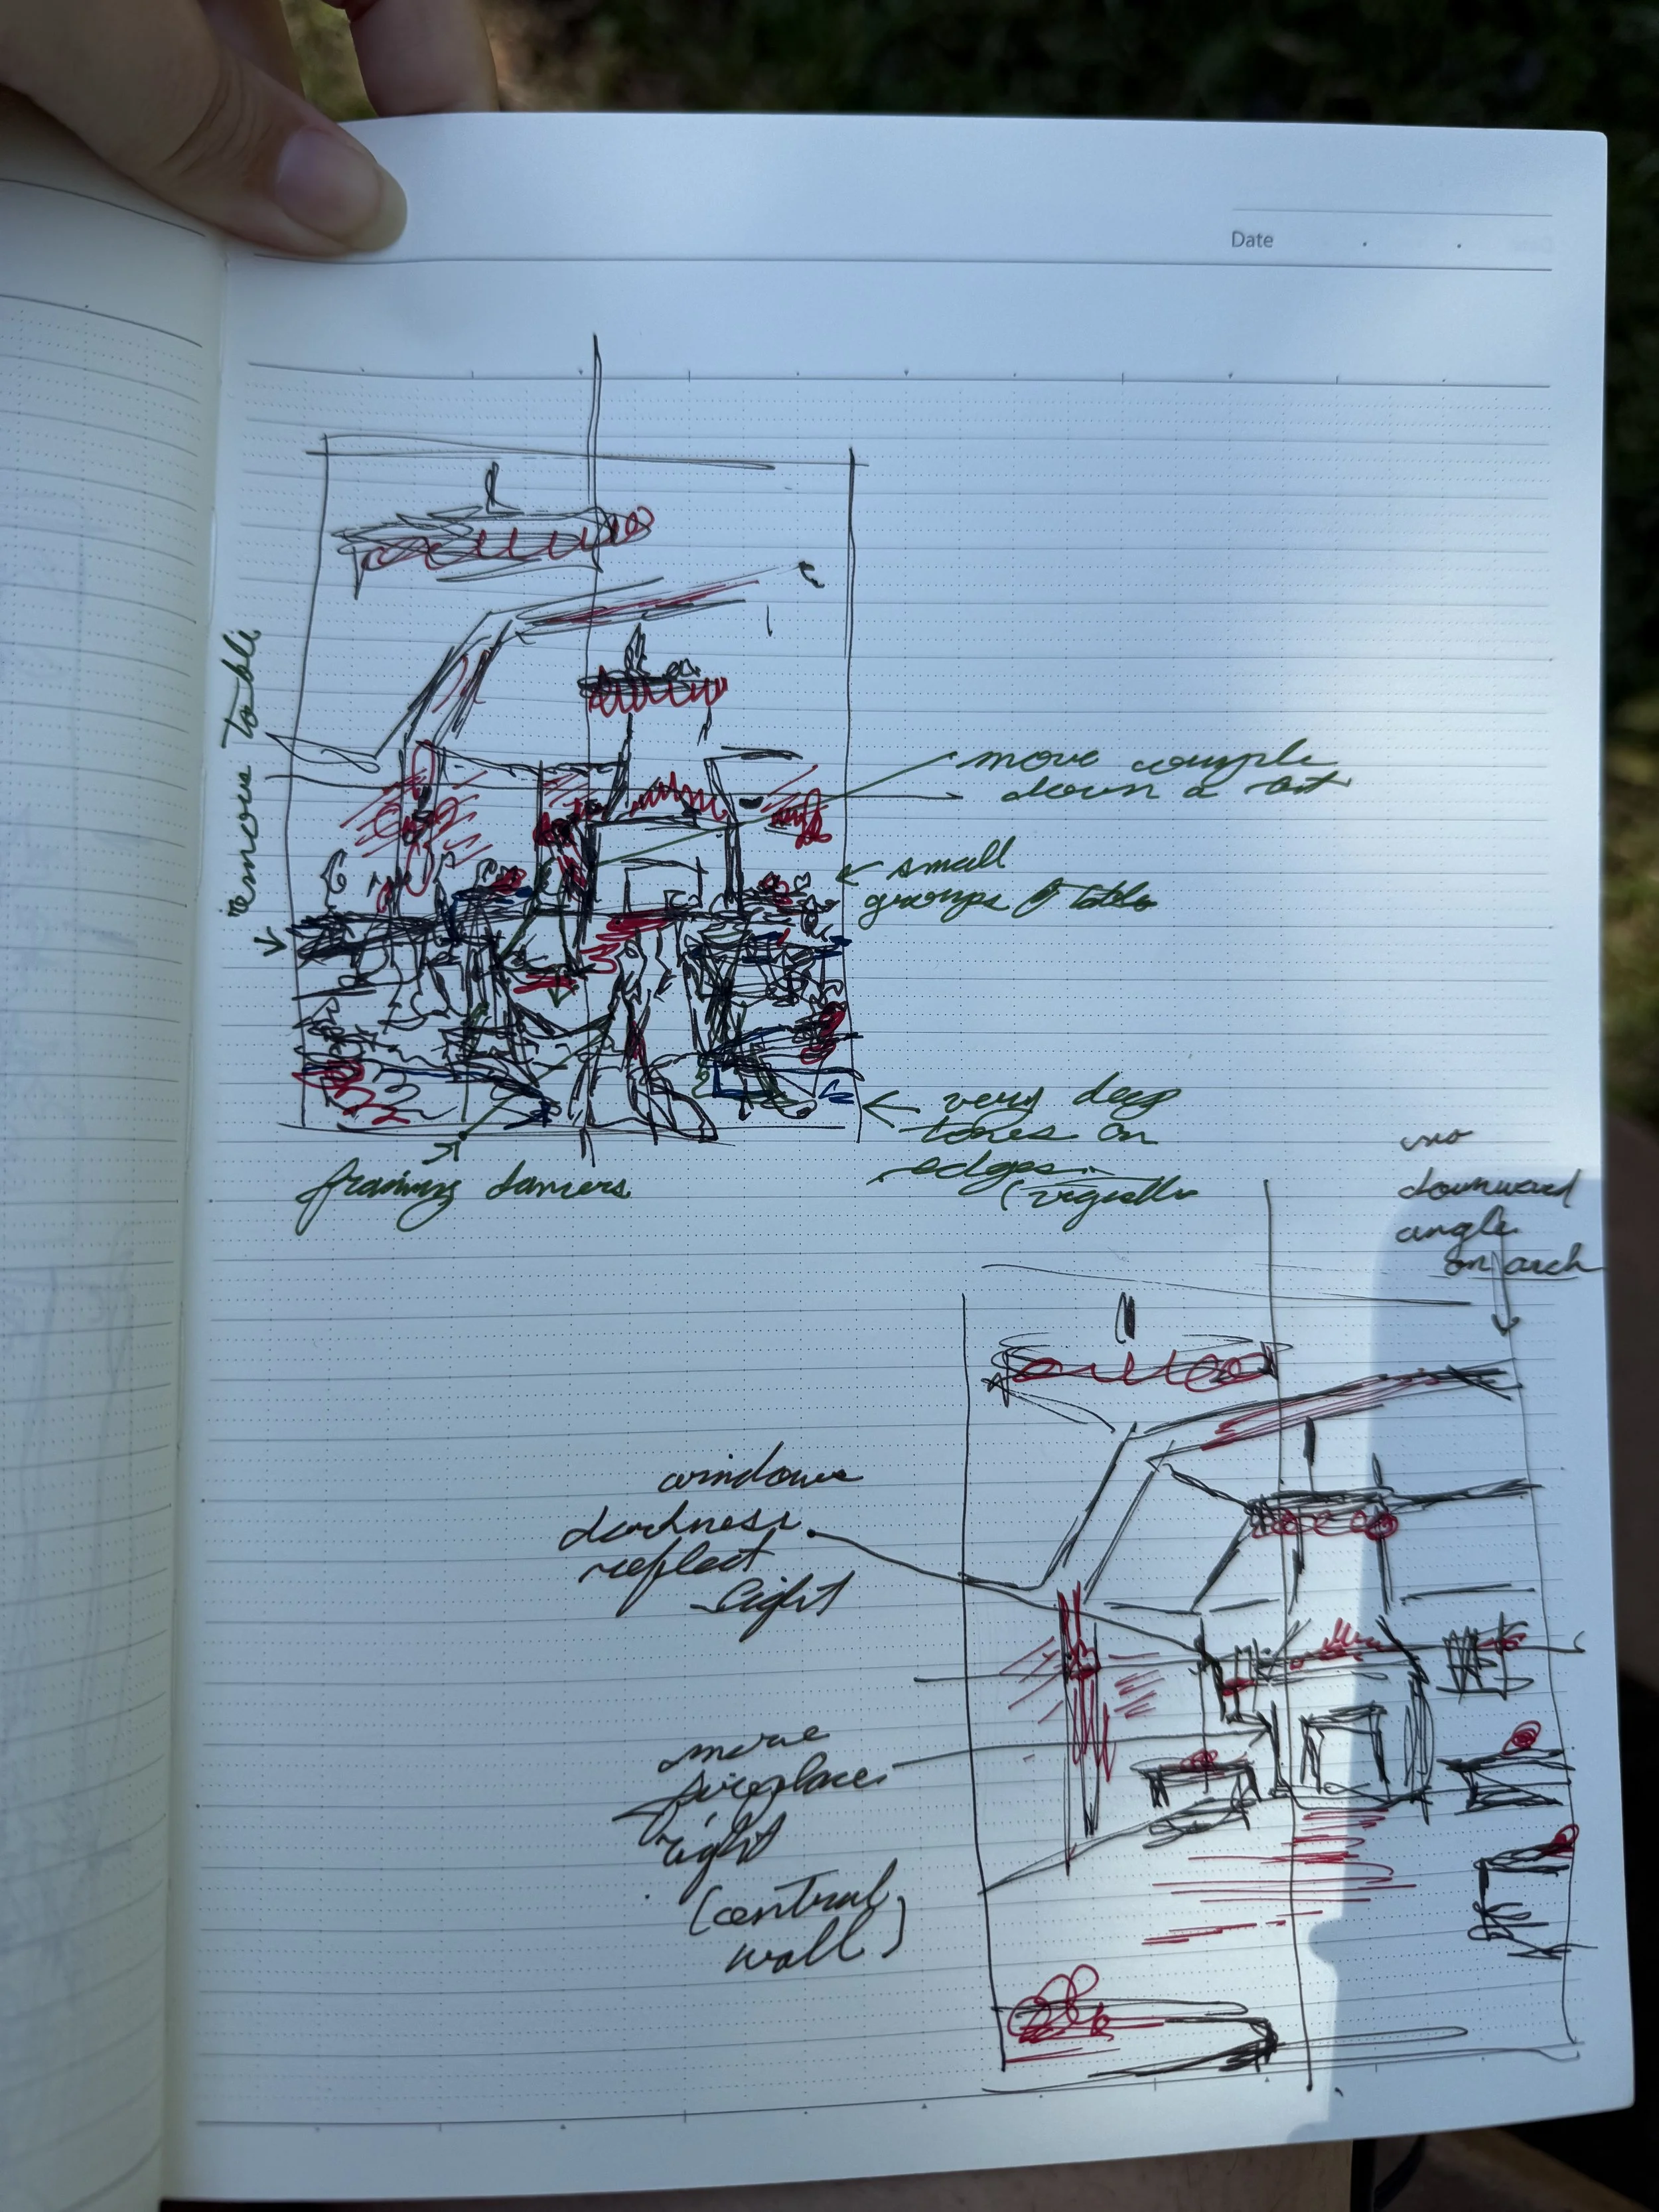 Date
remove table
move couple
down a bit
small
groups @ table
very deep
tones on
edges
framing dancers
no
downward
angle
on arch
windows
darkness
reflect
light
move
fireplace
right
(central
wall)